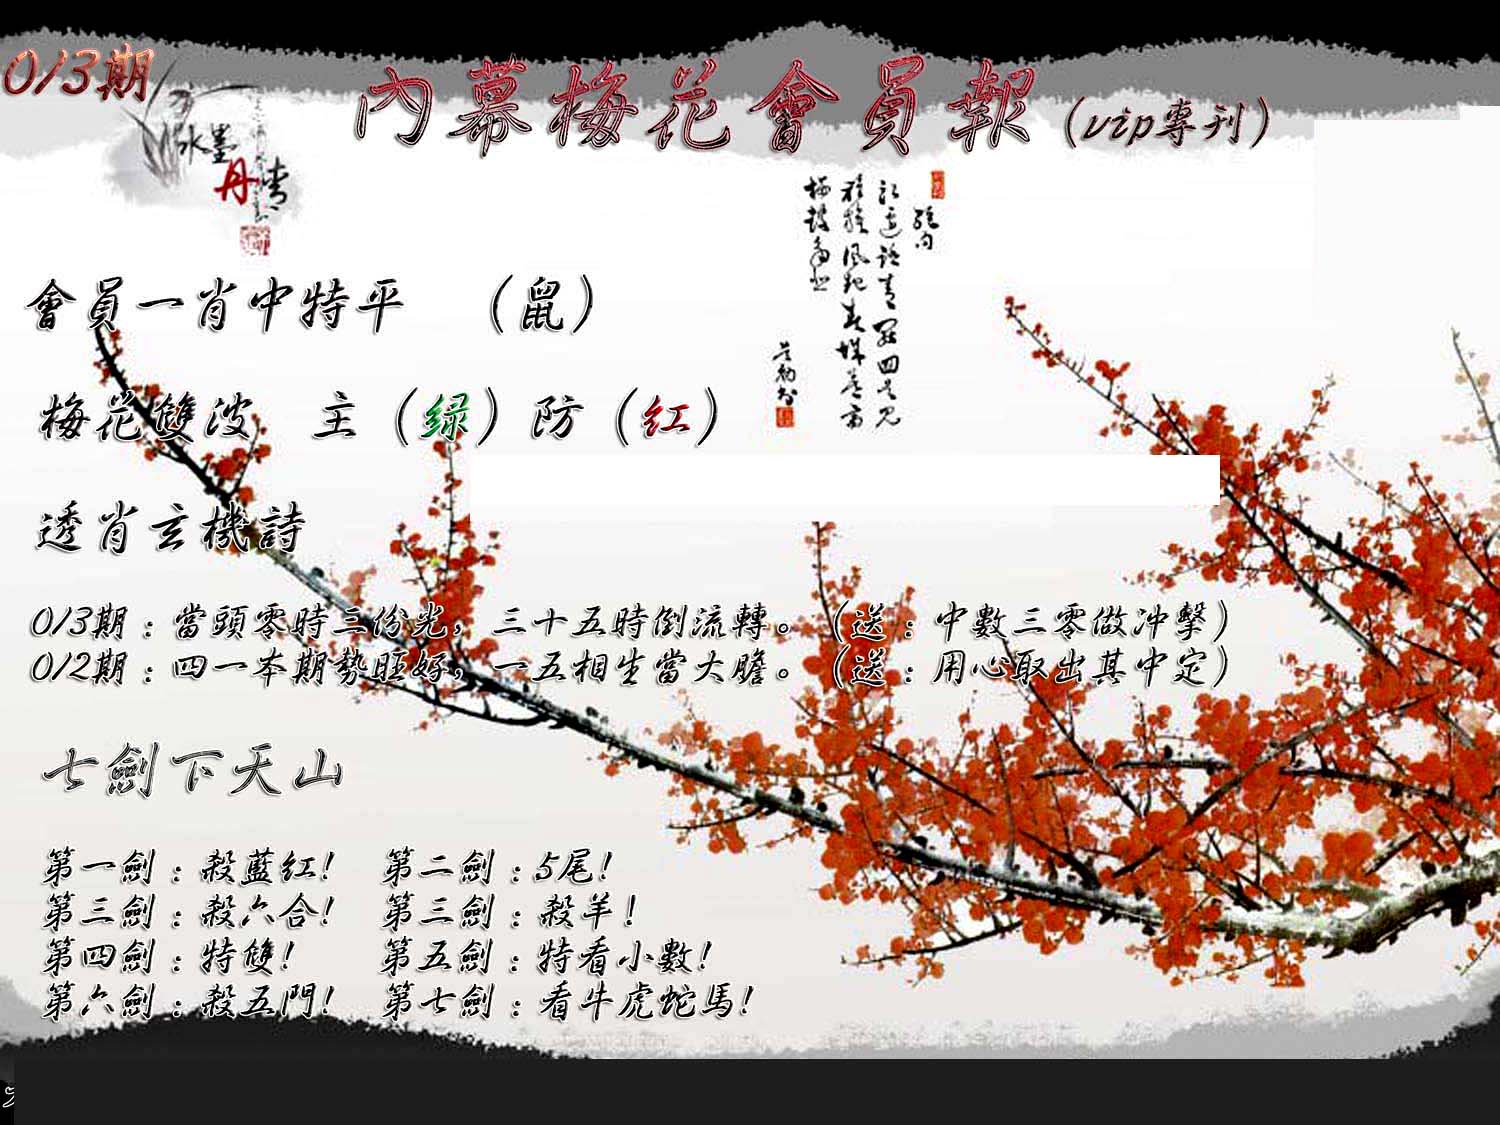 013期
內幕梅花會員報(vip專刊)
水墨
丹青
會員一肖中特平 （鼠）
梅花雙波 主（绿）防（红）
透肖玄機詩
013期：當頭零時三份光，三十五時倒流轉。（送：中數三零做冲擊）
012期：四一本期勢旺好，一五相生當大膽。（送：用心取出其中定）
七劍下天山
第一劍：殺藍紅! 第二劍：5尾!
第三劍：殺六合! 第三劍：殺羊!
第四劍：特雙! 第五劍：特看小數!
第六劍：殺五門! 第七劍：看牛虎蛇馬!